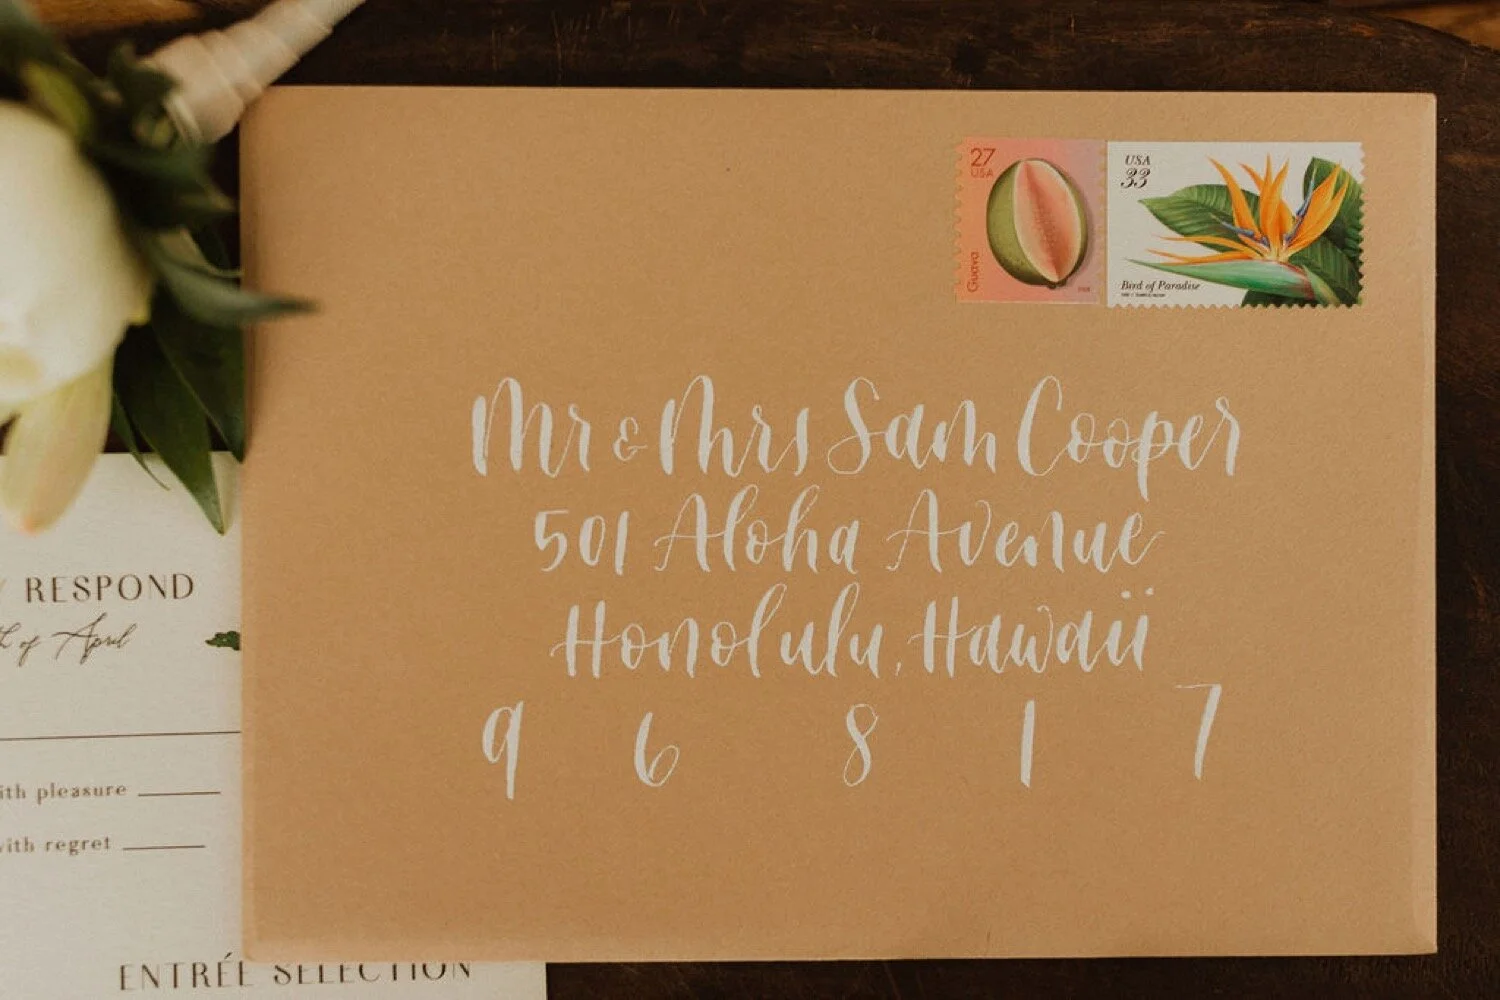 27
USA
Guava
USA
33
Bird of Paradise
Mr & Mrs Sam Cooper
501 Aloha Avenue
Honolulu, Hawaii
9 6 8 1 7
RESPOND
of April
pleasure
with regret
ENTRÉE SELECTION